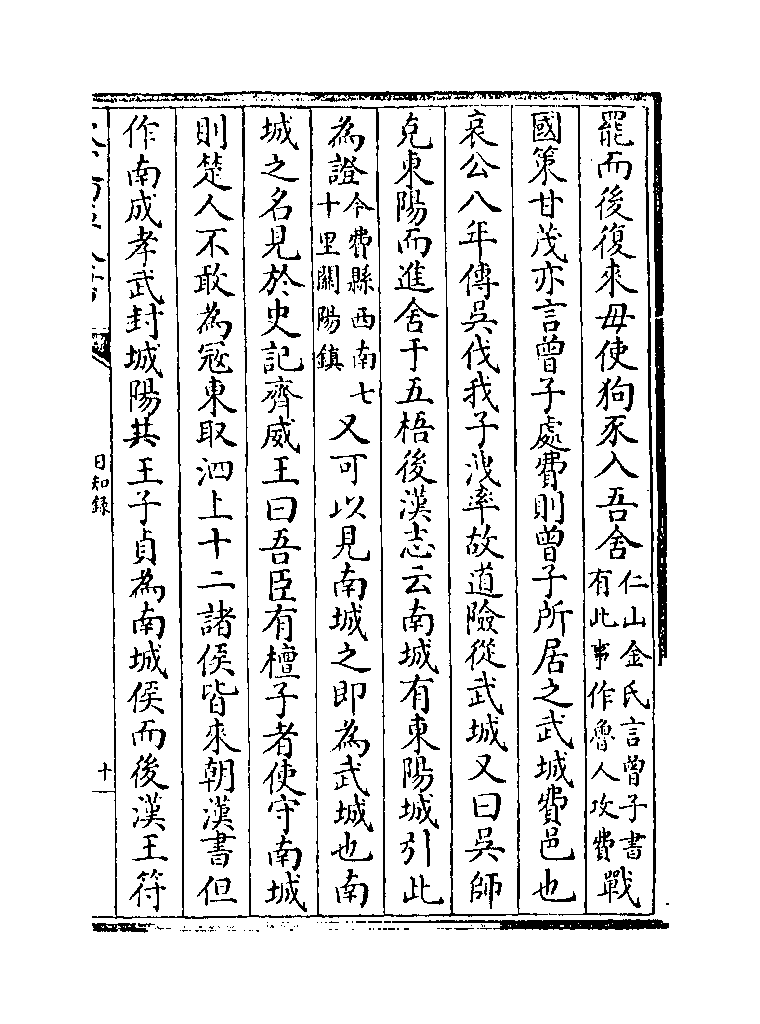 罷而後復來毋使狗豕入吾舍仁山金氏言曾子書有此事作魯人攻費戰
國策甘茂亦言曾子處費則曾子所居之武城費邑也
哀公八年傳吳伐我子洩率故道險從武城又曰吳師
克東陽而進舍于五梧後漢志云南城有東陽城引此
為證今費縣西南七十里關陽鎮又可以見南城之即為武城也南
城之名見於史記齊威王曰吾臣有檀子者使守南城
則楚人不敢為冦東取泗上十二諸侯皆來朝漢書但
作南成孝武封城陽共王子貞為南城侯而後漢王符
日知錄
十